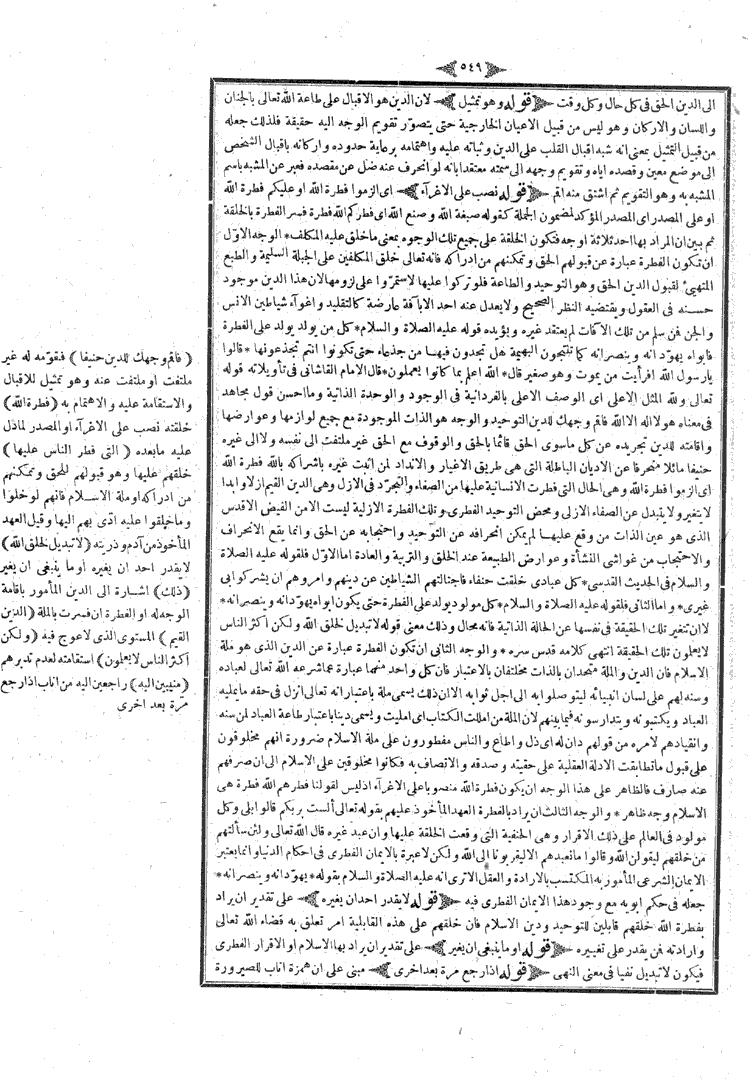 ٥٤٩
الى الدين الحق فى كل حال وكل وقت قوله وهو تمثيل لان الدين هو الاقبال على طاعة الله تعالى بالجنان
واللسان والاركان وهو ليس من قبيل الاعيان الخارجية حتى يتصوّر تقويم الوجه اليه حقيقة فلذلك جعله
من قبيل التمثيل بمعنى انه شبه اقبال القلب على الدين وثباته عليه واهتمامه برعاية حدوده واركانه باقبال الشخص
الى موضع معين وقصده اياه وتقويم وجهه الى سمته معتقدا بانه لو انحرف عنه ضل عن مقصده فعبر عن المشبه باسم
المشبه به وهو التقويم ثم اشتق منه اقم قوله نصب على الاغرآء اى الزموا فطرة الله او عليكم فطرة الله
او على المصدر اى المصدر المؤكد لمضمون الجملة كقوله صبغة الله وصنع الله اى فطركم الله فطرة فسر الفطرة بالخلقة
ثم بين ان المراد بها احد ثلاثة اوجه فتكون الخلقة على جميع تلك الوجوه بمعنى ما خلق عليه المكلف * الوجه الاوّل
ان تكون الفطرة عبارة عن قبولهم الحق وتمكنهم من ادراكه فانه تعالى خلق المكلفين على الجبلة السليمة والطبع
المتهيئ لقبول الدين الحق وهو التوحيد والطاعة فلو تركوا عليها لاستمرّوا على لزومها لان هذا الدين موجود
حسنه فى العقول ويقتضيه النظر الصحيح ولا يعدل عنه احد الا بآفة عارضة كالتقليد واغوآء شياطين الانس
والجن فمن سلم من تلك الآفات لم يعتقد غيره ويؤيده قوله عليه الصلاة والسلام * كل من يولد يولد على الفطرة
فابواه يهوّدانه وينصرانه كما تنتجون البهيمة هل تجدون فيها من جدعاء حتى تكونوا انتم تجدعونها * قالوا
يارسول الله افرأيت من يموت وهو صغير قال * الله اعلم بما كانوا يعملون * قال الامام القاشانى فى تأويلاته قوله
تعالى ولله المثل الاعلى اى الوصف الاعلى بالفردانية فى الوجود والوحدة الذاتية وما احسن قول مجاهد
فى معناه هو لا اله الا الله فاقم وجهك للدين التوحيد والوجه هو الذات الموجودة مع جميع لوازمها وعوارضها
واقامته للدين تجريده عن كل ماسوى الحق قائما بالحق والوقوف مع الحق غير ملتفت الى نفسه ولا الى غيره
حنيفا مائلا منحرفا عن الاديان الباطلة التى هى طريق الاغيار والانداد لمن اثبت غيره باشراكه بالله فطرة الله
اى الزموا فطرة الله وهى الحال التى فطرت الانسانية عليها من الصفاء والتجرّد فى الازل وهى الدين القيم ازلا وابدا
لا يتغير ولا يتبدل عن الصفاء الازلى ومحض التوحيد الفطرى وتلك الفطرة الازلية ليست الا من الفيض الاقدس
الذى هو عين الذات من وقع عليها لم يمكن انحرافه عن التوحيد واحتجابه عن الحق وانما يقع الانحراف
والاحتجاب من غواشى النشأة وعوارض الطبيعة عند الخلق والتربية والعادة اما الاوّل فلقوله عليه الصلاة
والسلام فى الحديث القدسى * كل عبادى خلقت حنفاء فاجتالتهم الشياطين عن دينهم وامروهم ان يشركوا بى
غيرى * واما الثانى فلقوله عليه الصلاة والسلام * كل مولود يولد على الفطرة حتى يكون ابواه يهوّدانه وينصرانه *
لا ان تتغير تلك الحقيقة فى نفسها عن الحالة الذاتية فانه محال وذلك معنى قوله لا تبديل لخلق الله ولكن اكثر الناس
لا يعلمون تلك الحقيقة انتهى كلامه قدس سره * والوجه الثانى ان تكون الفطرة عبارة عن الدين الذى هو ملة
الاسلام فان الدين والملة متحدان بالذات مختلفان بالاعتبار فان كل واحد منهما عبارة عما شرعه الله تعالى لعباده
وسنه لهم على لسان انبيائه ليتوصلوا به الى اجل ثوابه الا ان ذلك يسمى ملة باعتبار انه تعالى انزل فى حقه ما يمليه
العباد ويكتبونه ويتدارسونه فيما بينهم لان الملة من امللت الكتاب اى امليت ويسمى دينا باعتبار طاعة العباد لمن سنه
وانقيادهم لامره من قولهم دان له اى ذل واطاع والناس مفطورون على ملة الاسلام ضرورة انهم مخلوقون
على قبول ما تطابقت الادلة العقلية على حقيته وصدقه والاتصاف به فكانوا مخلوقين على الاسلام الى ان صرفهم
عنه صارف فالظاهر على هذا الوجه ان يكون فطرة الله منصوبا على الاغرآء اذ ليس لقولنا فطرهم الله فطرة هى
الاسلام وجه ظاهر * والوجه الثالث ان يراد بالفطرة العهد المأخوذ عليهم بقوله تعالى ألست بربكم قالوا بلى وكل
مولود فى العالم على ذلك الاقرار وهى الحنفية التى وقعت الخلقة عليها وان عبد غيره قال الله تعالى ولئن سألتهم
من خلقهم ليقولن الله وقالوا ما نعبدهم الا ليقربونا الى الله ولكن لا عبرة بالايمان الفطرى فى احكام الدنيا وانما يعتبر
الايمان الشرعى المأمور به المكتسب بالارادة والعقل الا ترى انه عليه الصلاة والسلام بقوله * يهوّدانه وينصرانه *
جعله فى حكم ابويه مع وجود هذا الايمان الفطرى فيه قوله لا يقدر احد ان يغيره على تقدير ان يراد
بفطرة الله خلقهم قابلين للتوحيد ودين الاسلام فان خلقهم على هذه القابلية امر تعلق به قضاء الله تعالى
وارادته فمن يقدر على تغييره قوله او ما ينبغى ان يغير على تقدير ان يراد بها الاسلام او الاقرار الفطرى
فيكون لا تبديل نفيا فى معنى النهى قوله اذا رجع مرة بعد اخرى مبنى على ان همزة اناب للصيرورة
(فاقم وجهك للدين حنيفا) فقوّمه له غير
ملتفت او ملتفت عنه وهو تمثيل للاقبال
والاستقامة عليه والاهتمام به (فطرة الله)
خلقته نصب على الاغرآء او المصدر لما دل
عليه ما بعده (التى فطر الناس عليها)
خلقهم عليها وهو قبولهم للحق وتمكنهم
من ادراكه او ملة الاسلام فانهم لو خلوا
وما خلقوا عليه ادّى بهم اليها وقيل العهد
المأخوذ من آدم وذريته (لا تبديل لخلق الله)
لا يقدر احد ان يغيره او ما ينبغى ان يغير
(ذلك) اشارة الى الدين المأمور باقامة
الوجه له او الفطرة ان فسرت بالملة (الدين
القيم) المستوى الذى لا عوج فيه (ولكن
اكثر الناس لا يعلمون) استقامته لعدم تدبرهم
(منيبين اليه) راجعين اليه من اناب اذا رجع
مرة بعد اخرى